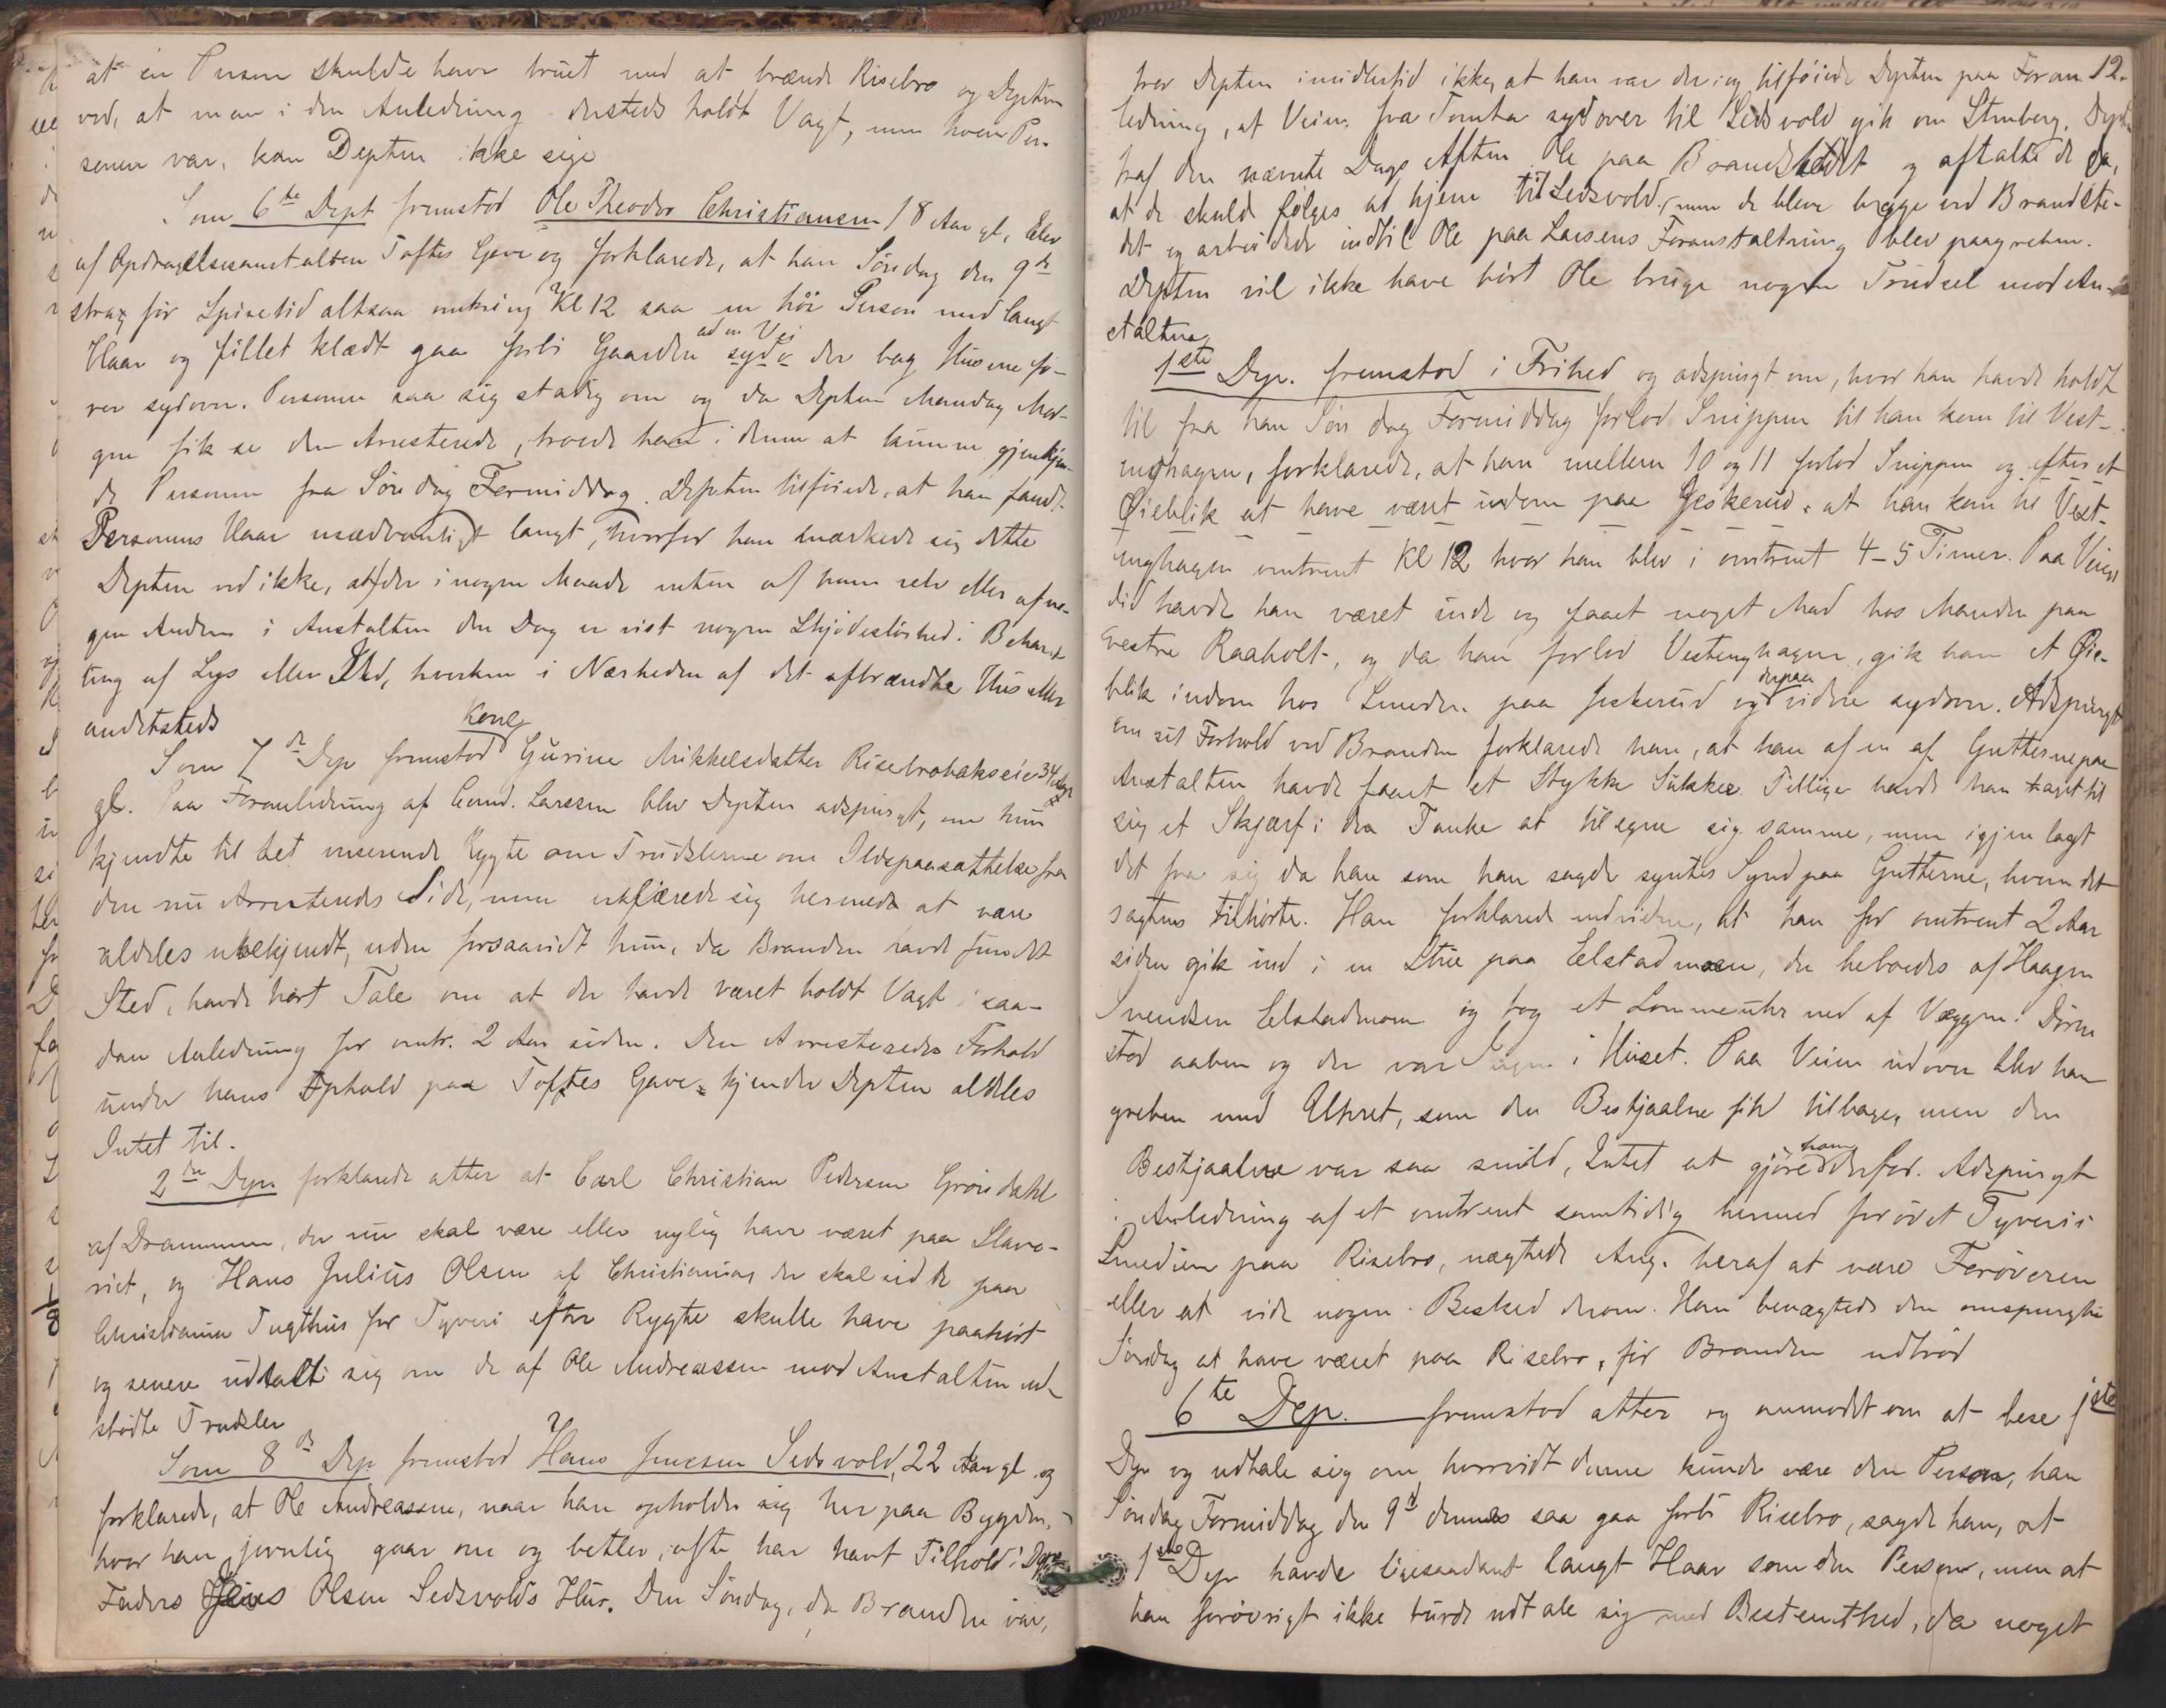 at en Person skulde have truet med at brænde Risebro og Depten
ved, at man i den Anledning dersteds holdt Vagt, men hvem Per-
sonen var, kan Depten ikke sige
Som 6te Dept fremstod Ole Theodor Christiansen 18 Aar gl, Elev
af Opdragelsesanstalten Toftes Gave og forklarede, at han Søndag den 9de
strax før Spisetid altsaa omkring Kl 12 saa en høi Person med langt
Haar og fillet klædt gaa forbi Gaarden ad en Vei der bag Husene fø-
rer sydover. Personen saa sig stadig om og da Depten Mandag Mor-
gen fik se den Arresterede, troede han i denne at kunne gjenkjen-
de Personen fra Søndag Formiddag. Depten tilføiede, at han fandt
Personens Haar usædvanligt langt, hvorfor han mærkede sig dette
Depten ved ikke, at der i nogen Maade enten af ham selv eller af no-
gen Anden i Anstalten den Dag er vist nogen Skjødesløshed i Behand-
ling af Lys eller Ild, hverken i Nærheden af det afbrændte Hus eller
andetsteds
Som 7de Dep fremstod Kone Gurine Mikkelsdatter Risebrobakseie 34 Aar
gl. Paa Foranledning af Comd. Larssen blev Depten adspurgt, om hun
kjendte til det verserende Rygte om Trudslerne om Ildspaasættelse fra
den nu Arresteredes Side, men erklærede sig hermed at være
aldeles ubekjendt, uden forsaavidt hun, da Branden havde fundet
Sted, havde hørt Tale om at der havde været holdt Vagt i saa-
dan Anledning for omtr. 2 Aar siden. Den Arresteredes Forhold
under hans Ophold paa Toftes Gave kjender Depten aldeles
Intet til.
2den Dep. forklarede atter at Carl Christian Pedersen Grøndahl
af Drammen, der nu skal være eller nylig have været paa Slave-
riet, og Hans Julius Olsen af Christiania, der skal sidde paa
Christiania Tugthus for Tyveri efter Rygte skulle have paahørt
og senere udtalt sig om de af Ole Andreassen mod Anstalten ud-
stødte Trudsler
Som 8de Dep fremstod Hans Jensen Sedsvold, 22 Aar gl og
forklarede, at Ole Andreassen, naar han opholder sig her paa Bygden,
hvor han jevnlig gaar om og betler, ofte har havt Tilhold i Deptens
Faders Jens Olsen Sedsvolds Hus. Den Søndag, da Branden var,
12.
tror Depten imidlertid ikke, at han var der; og tilføiede Depten paa Foran-
ledning, at Veien fra Tomta sydover til Sedsvold gik om Stenberg. Depten
traf den nævnte Dags Aften Ole paa Brandstedet og aftalte de da,
at de skulde følges ad hjem til Sedsvold, men de bleve begge ved Brandste-
det og arbeidede indtil Ole paa Larsens Foranstaltning blev paagreben.
Depten vil ikke have hørt Ole bruge nogen Trudsel mod An-
stalten
1ste Dep. fremstod i Frihed og adspurgt om, hvor han havde holdt
til fra han Søndag Formiddag forlod Snippen til han kom til Vest-
enghagen, forklarede, at han mellem 10 og 11 forlod Snippen og efter et
Øieblik at have været indom paa Jeskerud, at han kom til Vest-
enghagen omtrent Kl 12 hvor han blev i omtrent 4-5 Timer. Paa Veien
did havde han været inde og faaet noget Mad hos Manden paa
vestre Raaholt, og da han forlod Vestenghagen, gik han et Øie-
blik indom hos Smeden paa Jeskerud og derpaa videre sydover. Adspurgt
om sit Forhold ved Branden forklarede han, at han af en af Gutterne paa
Anstalten havde faaet et Stykke Sukker. Tillige havde han taget til
sig et Skjærf i den Tanke at tilegne sig samme, men igjen lagt
det fra sig da han som han sagde syntes Synd paa Gutterne, hvem det
sagtens tilhørte. Han forklarede endvidere, at han for omtrent 2 Aar
siden gik ind i en Stue paa Elstadmoen, der beboedes af Haagen
Svendsen Elstadmoen og tog et Lommeuhr ned af Væggen. Døren
stod aaben og der var Ingen i Huset. Paa Veien udover blev han
greben med Uhret, som den Bestjaalne fik tilbage, men den
Bestjaalne var saa snild, Intet at gjøre ham derfor. Adspurgt
i Anledning af et omtrent samtidig hermed forøvet Tyveri i
Smedien paa Risebro, nægtede Ang. heraf at være Forøveren
eller at vide nogen Besked derom. Han benægtede den omspurgte
Søndag at have været paa Risebro, før Branden udbrød
6te Dep. fremstod atter og anmodet om at bese 1ste
Dep og udtale sig om, hvorvidt denne kunde være den Person, han
Søndag Formiddag den 9d dennes saa gaa forbi Risebro, sagde han, at
1ste Dep havde ligesaadant langt Haar som den Person, men at
han forøvrigt ikke turde udtale sig med Bestemthed, da noget